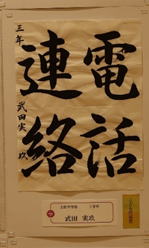 電話
連絡
三年 武田実玖
武田 実玖